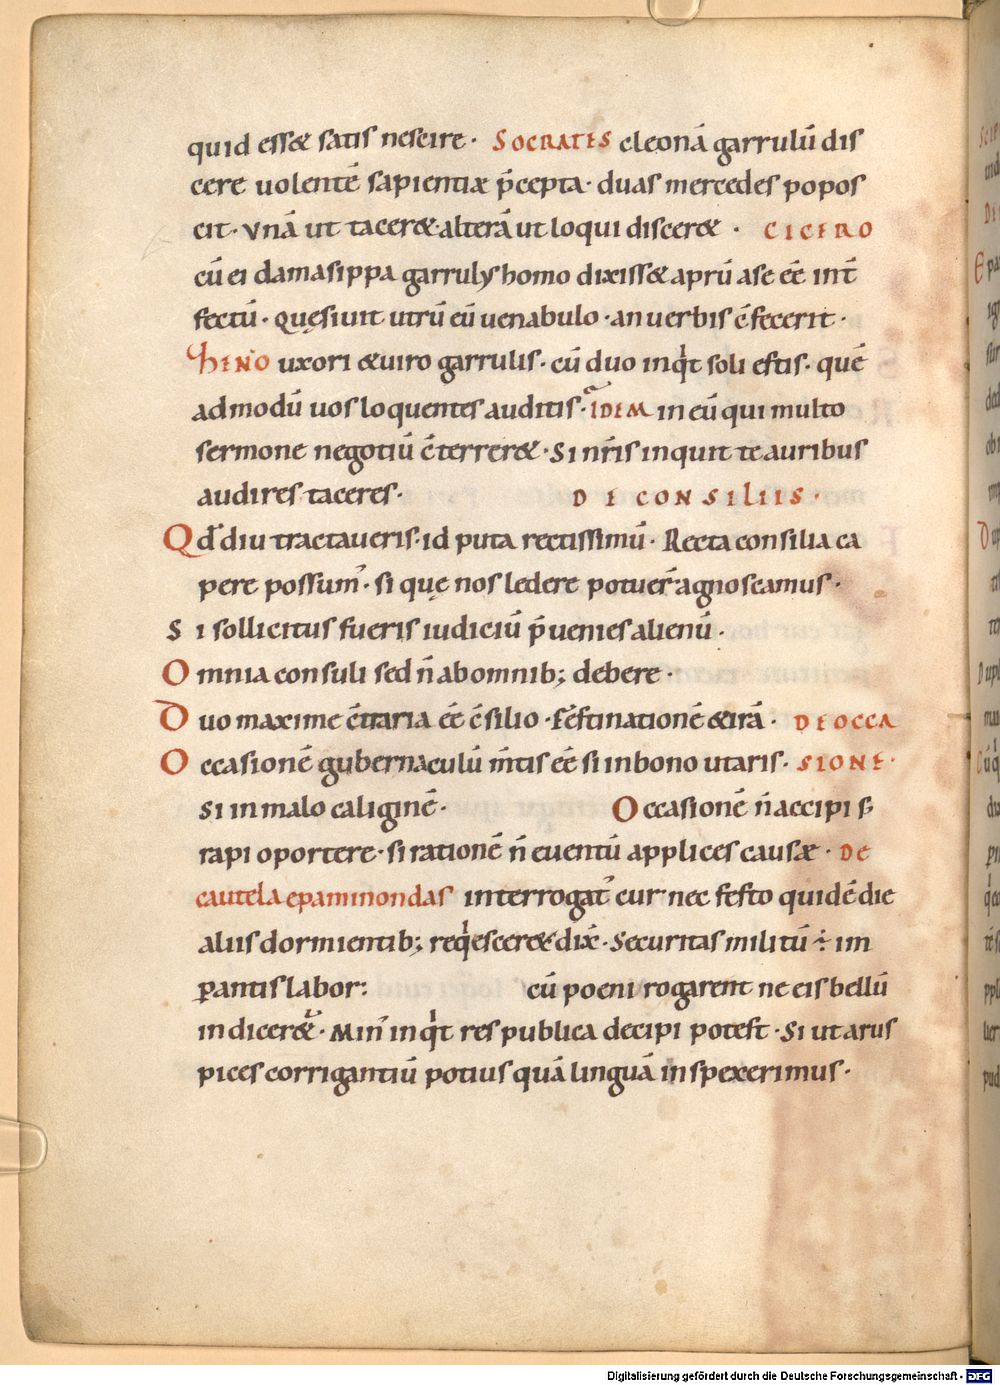 quid ess& satis nescire · SOCRATES cleonā garrulū dis
cere uolentē sapientiæ p̄cepta · duas mercedes popos
cit · vnā ut tacer& · alterā ut loqui discer& · CICERO
cū ei damasippa garrulys homo dixiss& aprū a se eē int̄
fectū · quęsiuit utrū eū uenabulo · an uerbis c̄fecerit ·
ZHENO uxori & uiro garrulis · cū duo inqͥt soli estis · quē
admodū uos loquentes auditis · IDEM in eū qui multo
sermone negotiū c̄terrer& · Si nr̄is inquit te auribus
audires taceres · DE CONSILIIS ·
Qđ diu tractaueris · id puta rectissimū · Recta consilia ca
pere possumʾ · si quę nos ledere potuer̄ agnoscamus ·
Si sollicitus fueris iudiciū p̄uenies alienū ·
Omnia consuli sed n̄ ab omnib; debere ·
Duo maxime c̄traria eē c̄silio · festinationē & irā · DE OCCA
Occasionē gubernaculū m̄tis eē si in bono utaris · SIONE ·
Si in malo caliginē · Occasionē n̄ accipi s;
rapi oportere · si rationē n̄ euentū applices causæ · DE
cautela epaminondas interrogatʾ cur nec festo quidē die
aliis dormientib; reqͥescer& dix̄ · Securitas militū ÷ im
ꝑantis labor: cū poeni rogarent ne eis bellū
indicer& · Minʾ inqͥt res publica decipi potest · Si ut arus
pices corrigantiū potius quā linguā inspexerimus ·
Digitalisierung gefördert durch die Deutsche Forschungsgemeinschaft - DFG